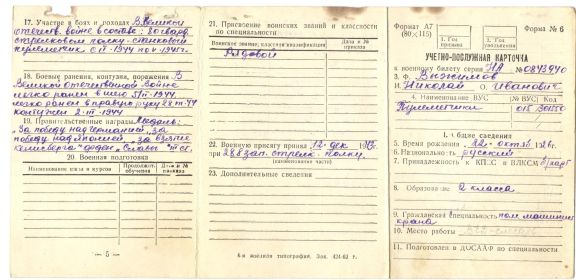 17. Участие в боях и походах В Великой
отечест. войне в составе: 80 гвард.
стрелковом полку - станковой
пулеметчик с III-1944 по V-1945 г.
18. Боевые ранения, контузии, поражения В
Великой отечественной войне
легко ранен в шею 5/II-1944.
легко ранен в правую руку 28/VII-44
контужен 2-III-1944
19. Правительственные награды Медали:
"За победу над Германией", "За
победу над Японией", "За взятие
Кенигсберга" орден "Слава" III ст.
20. Военная подготовка
Наименование вида и курсов
Продолжит. обучения
Дата и № приказа
— 5 —
21. Присвоение воинских званий и классности
по специальности
Воинское звание, классная квалификация
Дата и № приказа
Рядовой
22. Военную присягу принял 12 дек 1943 г.
при 288 зап. стрелк. полку.
(наименование части)
23. Дополнительные сведения
6-я военная типография. Зак. 424-62 г.
Формат А7
(80×115)
Форма № 6
1. Год призыва
2. Год увольнения
УЧЕТНО-ПОСЛУЖНАЯ КАРТОЧКА
к военному билету серии НА № 0843940
3. Ф.
И. Николай О. Иванович
4. Наименование ВУС
(№ ВУС) Код
Пулеметчики
I. Общие сведения
5. Время рождения 22 - октяб. 1926 г.
6. Национальность русский
7. Принадлежность к КПСС и ВЛКСМ б/парт
8. Образование 2 класса
9. Гражданская специальность пом. машиниста
крана
10. Место работы
11. Подготовлен в ДОСААФ по специальности